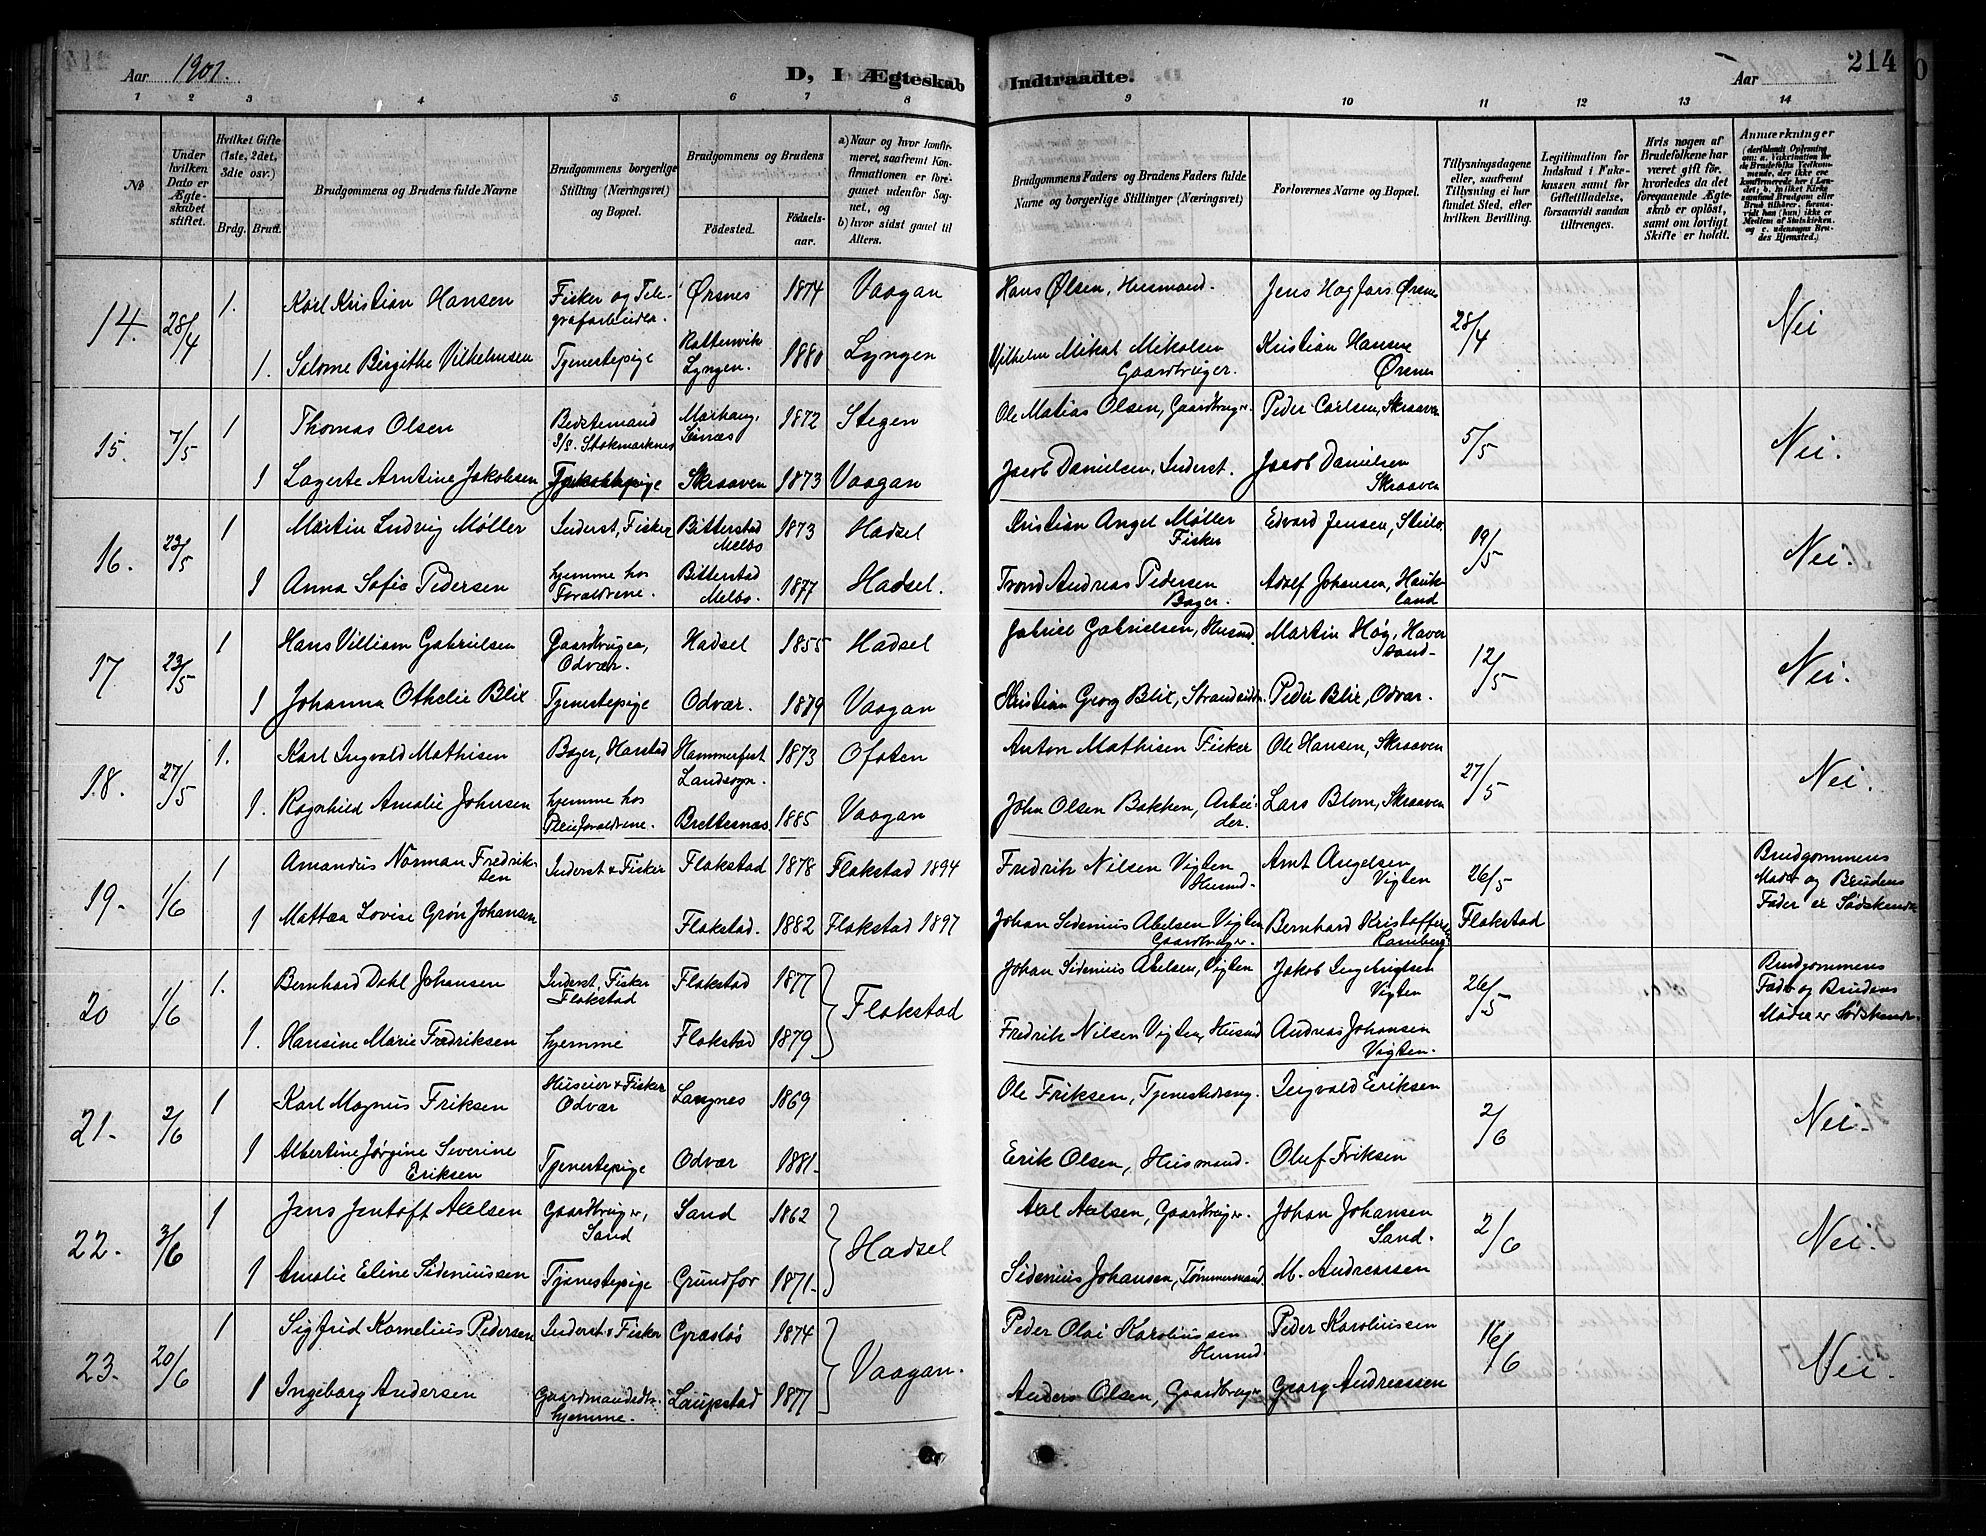 Aar 1901.
D, I Ægteskab Indtraadte.
Aar
214
1 2 3 4 5 6 7 8 9 10 11 12 13 14
№
Under hvilken Dato er Ægteskabet stiftet.
Hvilket Gifte (1ste, 2det, 3die osv.)
Brdg. Brud.
Brudgommens og Brudens fulde Navne
Brudgommens borgerlige Stilling (Næringsvei) og Bopæl.
Brudgommens og Brudens
Fødested.
Fødselsaar.
a) Naar og hvor konfirmeret, saafremt Konfirmationen er foregaaet udenfor Sognet, og
b) hvor sidst gaaet til Alters.
Brudgommens Faders og Brudens Faders fulde Navne og borgerlige Stillinger (Næringsvei)
Forlovernes Navne og Bopæl.
Tillysningsdagene eller, saafremt Tillysning ei har fundet Sted, efter hvilken Bevilling.
Legitimation for Indskud i Enkekassen samt for Giftetilladelse, forsaavidt saadan tiltrænges.
Hvis nogen af Brudefolkene har været gift før, hvorledes da det foregaaende Ægteskab er opløst, samt om lovligt Skifte er holdt.
Anmærkninger
14. 28/4 1. Karl Kristian Hansen Fisker og Telegrafarbeider. Ørsnes 1874 Vaagan Hans Olsen, Husmand. Jens Hagfors Ørsnes 28/4 Nei
1. Salome Birgithe Vilhelmsen Tjenestepige Rottenvik Lyngen. 1880 Lyngen Vilhelm Mikal Mikalsen Gaardbruger. Kristian Hansen Ørsnes
15. 7/5 1 Thomas Olsen Bedstemand S/S. Stokmarknes 1872 Stegen Ole Matias Olsen, Gaardbruger Peder Carlsen, Skraaven 5/5 Nei.
1 Lagerte Arntine Jakobsen Skraaven 1873 Vaagan Jacob Danielsen, Inderst. Jacob Danielsen Skraaven
16. 23/5 1 Martin Ludvig Møller Inderst, Fisker Bitterstad Melbo 1873 Hadsel Kristian Angel Møller Fisker Edvard Jensen, 19/5 Nei.
1 Anna Sofie Pedersen hjemme hos Forældrene. Bitterstad Melbo. 1877 Hadsel. Trond Andreas Pedersen Bager. Adolf Johansen, Haukland
17 23/5 1 Hans Villiam Gabrielsen Gaardbruger, Odvær. Hadsel 1855 Hadsel Gabriel Gabrielsen, Husmd. Martin Høg, Haversand 12/5 Nei.
1 Johanna Othelie Blix Tjenestepige Odvær. 1879 Vaagan Kristian Georg Blix, Strandsidder. Peder Blix, Odvær.
18. 27/5 1. Karl Ingvald Mathisen Bager, Harstad Hammerfest Landsogn. 1873 Ofoten Anton Mathisen Fisker Ole Hansen, Skraaven 27/5 Nei.
1. Ragnhild Amalie Johnsen hjemme hos Pleieforældrene. Brettesnæs 1885 Vaagan John Olsen Bakken, Arbeider. Lars Blom, Skraaven
19. 1/6 1 Amandus Norman Fredriksen Inderst & Fisker Flakstad 1878 Flakstad 1894 Fredrik Nilsen Vigten Husmd. Arnt Angelsen Vigten 26/5 Brudgommens Moder og Brudens Fader er Sødskende
1 Mattea Lovise Grøn Johansen Flakstad. 1882 Flakstad 1897 Johan Sidenius Abelsen Vigten Gaardbruger. Bernhard Kristoffersen Ramberg Flakstad
20 1/6 1. Bernhard Dahl Johansen Inderst, Fisker Flakstad Flakstad 1877 Flakstad Johan Sidenius Abelsen, Vigten Jakob Ingebrigtsen Vigten 26/5 Brudgommens Fader og Brudens Moder er Sødskende.
1. Hansine Marie Fredriksen hjemme Flakstad 1879 Fredrik Nilsen Vigten, Husmd Andreas Johansen Vigten.
21. 2/6 1 Karl Magnus Friksen Huseier & Fisker Odvær Langnes 1869 Ole Friksen, Tjenestedreng. Ingvald Eriksen 2/6 Nei.
1 Albertine Jørgine Severine Eriksen Tjenestepige Odvær 1881. Erik Olsen, Husmand. Oluf Friksen
22. 3/6 1 Jens Jentoft Axelsen Gaardbruger, Sand Sand 1862 Hadsel Axel Axelsen, Gaardbruger. Johan Johansen Sand. 2/6 Nei.
1 Amalie Eline Sideniussen Tjenestepige Grundfor 1871. Sidenius Johansen, Tømmermand. M. Andreassen
23. 20/6 1 Sigfrid Kornelius Pedersen Inderst & Fisker 1874 Vaagan. Peder Olai Karoliussen Husmd. Peder Karoliussen 16/6 Nei.
1 Ingeborg Andersen Gaardmandsdtr. hjemme. Laupstad 1877 Anders Olsen, Gaardbruger Georg Andreassen